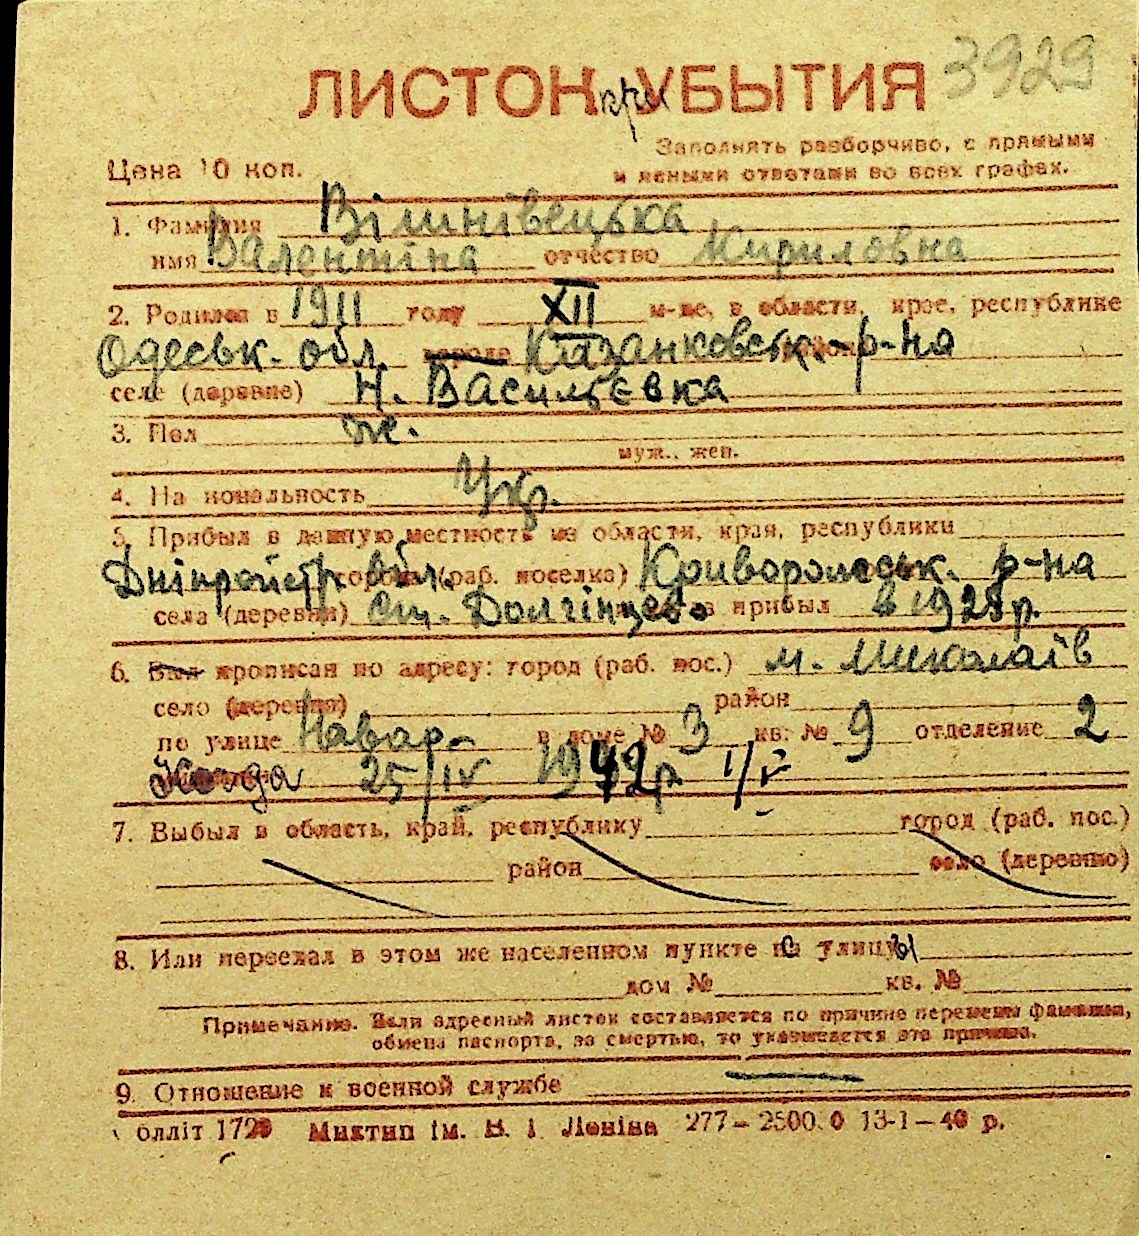 3929
ЛИСТОК при УБЫТИЯ
Заполнять разборчиво, с прямыми
Цена 10 коп.
и ясными ответами во всех графах.
1. Фамилия Вішнівецька
имя Валентіна отчество Кириловна
2. Родился в 1911 году XII м-це, в области, крае, республике
Одеськ. обл. городе Казанковськ. р-на
селе (деревне) Н. Васильєвка
3. Пол ж.
муж., жен.
4. На иональность Укр.
5. Прибыл в данную местность из области, края, республики
Дніпропетр. обл. города (раб. поселка) Криворожськ. р-на
села (деревни) ст. Долгінцево в прибыл в 1928 р.
6. Был прописан по адресу: город (раб. пос.) м. Миколаїв
село (деревня) район
по улице Навар. в доме № 3 кв. № 9 отделение 2
Когда 25/IV 1942 р. 1/V
7. Выбыл в область, край, республику город (раб. пос.)
район село (деревню)
8. Или переехал в этом же населенном пункте с улицы
дом № кв. №
Примечание. Если адресный листок составляется по причине перемены фамилии,
обмена паспорта, за смертью, то указывается эта причина.
9. Отношение к военной службе
блліт 1720 Миктип ім. В. І. Леніна 277—2500.0 13-1—40 р.